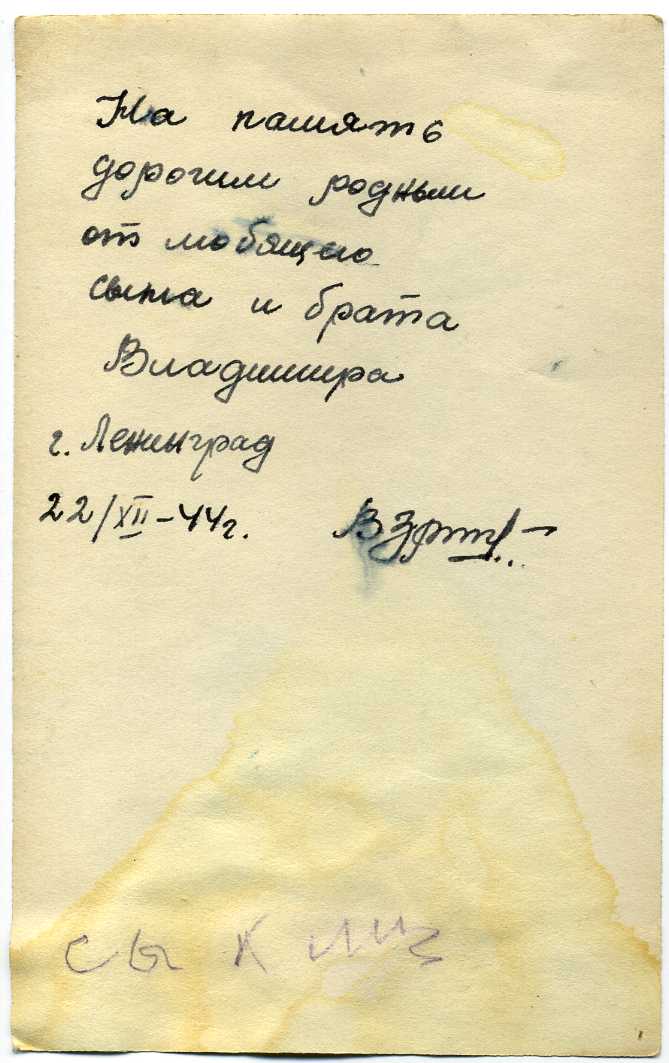 На память
дорогим родным
от любящего
сына и брата
Владимира
г. Ленинград
22/XII-44г.